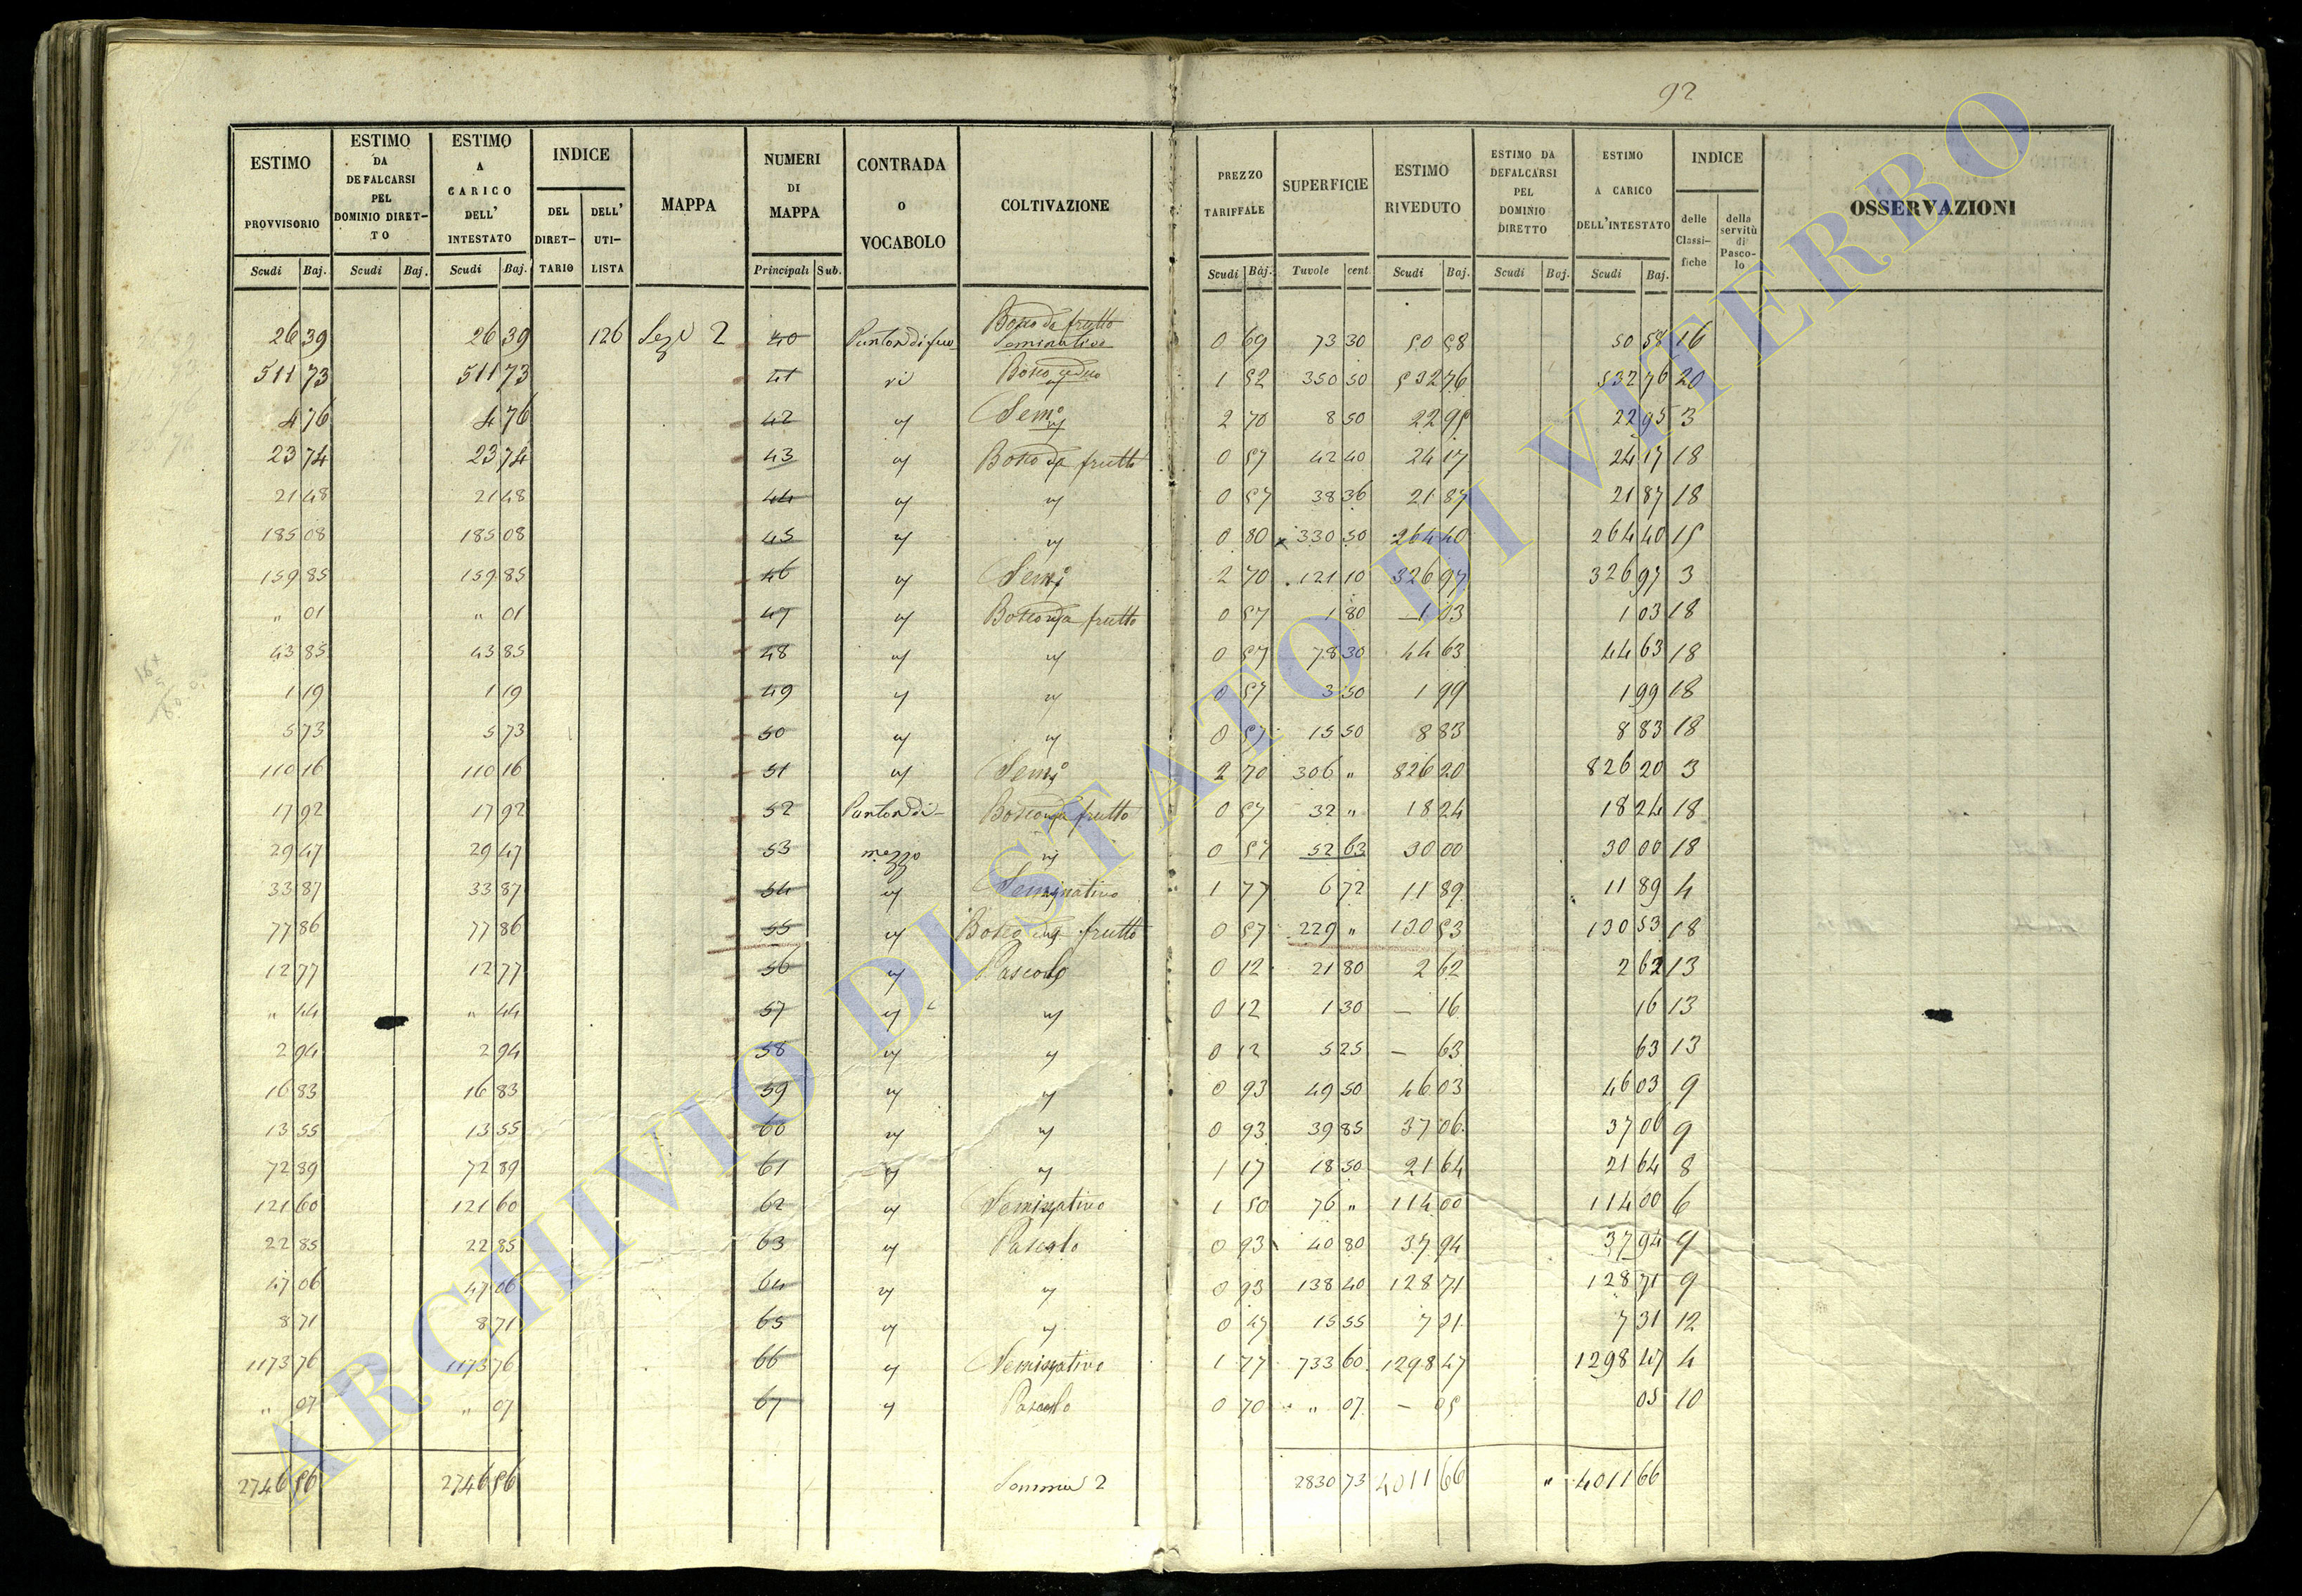 92
ESTIMO PROVVISORIO Scudi Baj.
ESTIMO DA DEFALCARSI PEL DOMINIO DIRET- TO Scudi Baj.
ESTIMO A CARICO DELL' INTESTATO Scudi Baj.
INDICE DEL DIRET- TARIO DELL' UTI- LISTA
MAPPA
NUMERI DI MAPPA Principali Sub.
CONTRADA O VOCABOLO
COLTIVAZIONE
PREZZO TARIFFALE Scudi Baj.
SUPERFICIE Tavole cent.
ESTIMO RIVEDUTO Scudi Baj.
ESTIMO DA DEFALCARSI PEL DOMINIO DIRETTO Scudi Baj.
ESTIMO A CARICO DELL'INTESTATO Scudi Baj.
INDICE delle Classi- fiche della servitù di Pasco- lo
OSSERVAZIONI
Bosco da frutto
26 39 26 39 126 Sez 2 40 Seminativo 0 69 73 30 50 58 50 58 16
511 73 511 73 41 id Bosco ceduo 1 52 350 50 532 76 532 76 20
4 76 4 76 42 " Sem° 2 70 8 50 22 95 22 95 3
23 74 23 74 43 " Bosco da frutto 0 57 42 40 24 17 24 17 18
21 48 21 48 44 " " 0 57 38 36 21 87 21 87 18
185 08 185 08 45 " " 0 80 330 50 264 40 264 40 15
159 85 159 85 46 " Sem° 2 70 121 10 326 97 326 97 3
" 01 " 01 47 " Bosco da frutto 0 57 1 80 1 03 1 03 18
43 85 43 85 48 " " 0 57 78 30 44 63 44 63 18
1 19 1 19 49 " " 0 57 3 50 1 99 1 99 18
5 73 5 73 50 " " 0 57 15 50 8 83 8 83 18
110 16 110 16 51 " Sem° 2 70 306 " 826 20 826 20 3
17 92 17 92 52 Punton di Bosco da frutto 0 57 32 " 18 24 18 24 18
29 47 29 47 53 mezzo " 0 57 52 63 30 00 30 00 18
33 87 33 87 54 " Seminativo 1 77 6 72 11 89 11 89 4
77 86 77 86 55 " Bosco da frutto 0 57 229 " 130 53 130 53 18
12 77 12 77 56 " Pascolo 0 12 21 80 2 62 2 62 13
" 44 " 44 57 " " 0 12 1 30 — 16 16 13
2 94 2 94 58 " " 0 12 5 25 — 63 63 13
16 83 16 83 59 " " 0 93 49 50 46 03 46 03 9
13 55 13 55 60 " " 0 93 39 85 37 06 37 06 9
72 89 72 89 61 " " 1 17 18 50 21 64 21 64 8
121 60 121 60 62 " Seminativo 1 50 76 " 114 00 114 00 6
22 85 22 85 63 " Pascolo 0 93 40 80 37 94 37 94 9
47 06 47 06 64 " " 0 93 138 40 128 71 128 71 9
8 71 8 71 65 " " 0 47 15 55 7 31 7 31 12
1173 76 1173 76 66 " Seminativo 1 77 733 60 1298 47 1298 47 4
" 07 " 07 67 " Pascolo 0 70 " 07 — 05 05 10
2746 56 2746 56 2 2830 73 4011 66 " 4011 66
ARCHIVIO DI STATO DI VITERBO